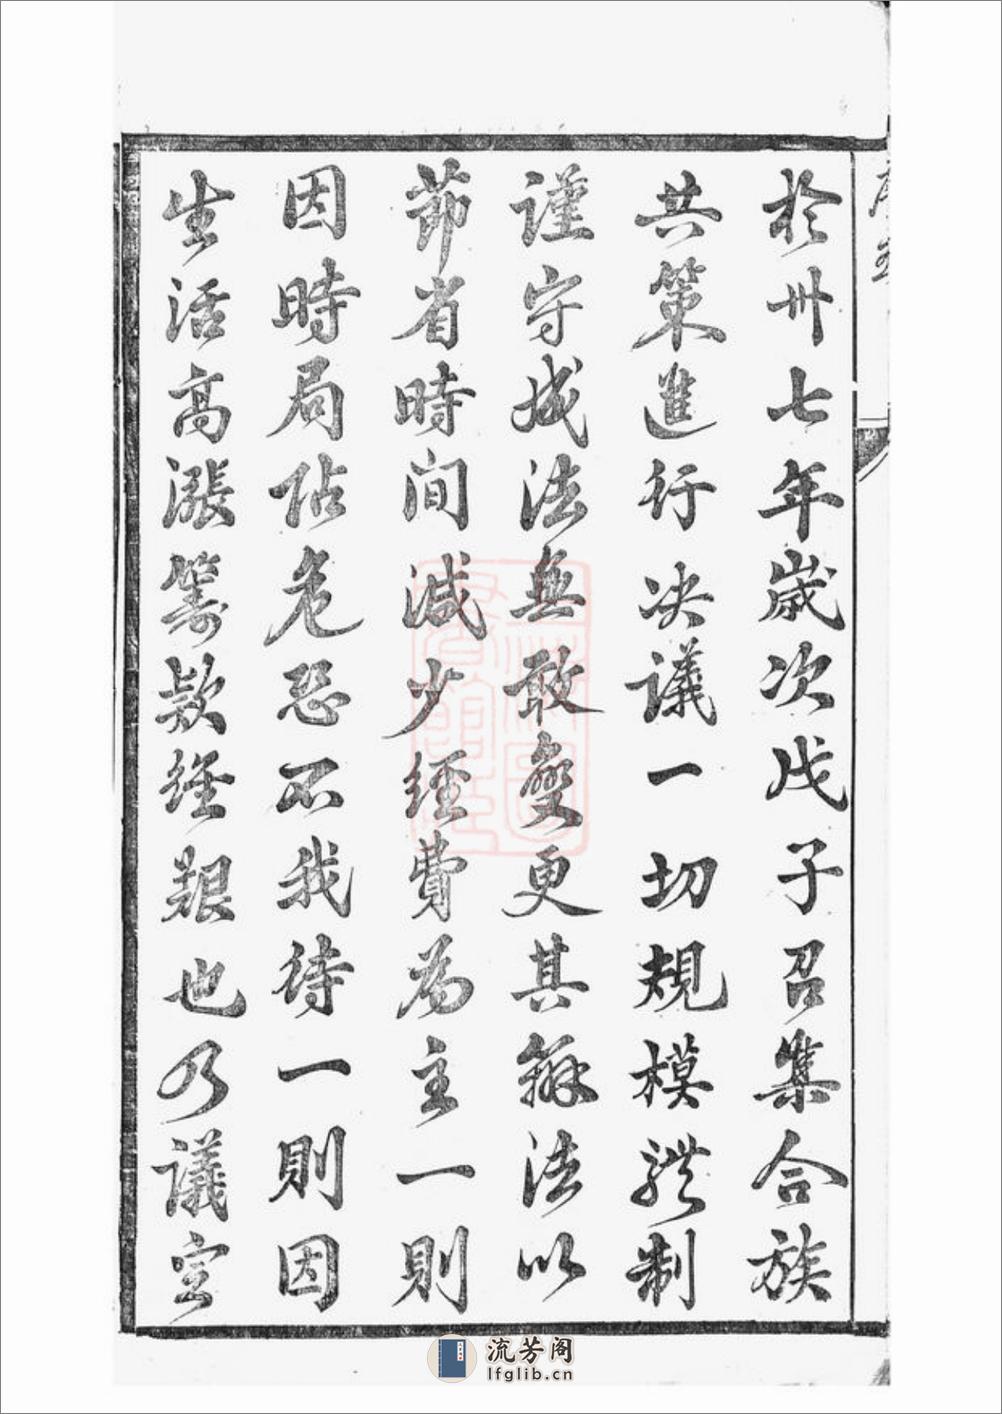 於卅七年歲次戊子召集合族
共策進行决議一切規模體制
謹守成法無敢變更其辦法以
節省時間減少經費為主一則
因時局阽危恐不我待一則因
生活高漲籌款經艱也乃議定
流芳阁
lfglib.cn